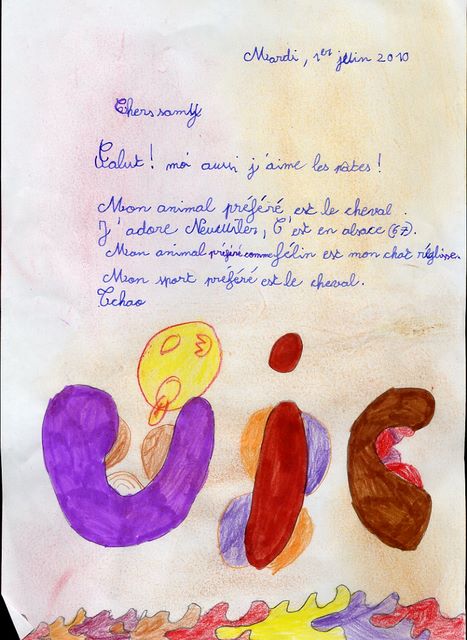 Mardi, 1er juin 2010
Chers samy
Salut! moi aussi j'aime les pâtes!
Mon animal préféré est le cheval.
J'adore Neuwiller, C'est en alsace (67).
Mon animal préféré comme félin est mon chat réglisse.
Mon sport préféré est le cheval.
Tchao
Vic